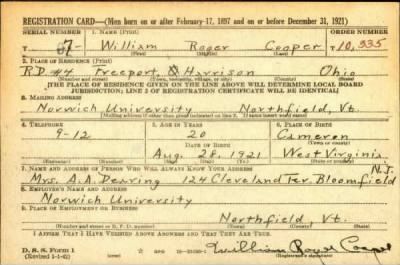 REGISTRATION CARD—(Men born on or after February 17, 1897 and on or before December 31, 1921)
SERIAL NUMBER 1. NAME (Print) ORDER NUMBER
T William Roger Cooper T 10,535
(First) (Middle) (Last)
2. PLACE OF RESIDENCE (Print)
R.D. #4 Freeport Harrison Ohio
(Number and street) (Town, township, village, or city) (County) (State)
[THE PLACE OF RESIDENCE GIVEN ON THE LINE ABOVE WILL DETERMINE LOCAL BOARD
JURISDICTION; LINE 2 OF REGISTRATION CERTIFICATE WILL BE IDENTICAL]
3. MAILING ADDRESS
Norwich University Northfield, Vt.
[Mailing address if other than place indicated on line 2. If same insert word same]
4. TELEPHONE 5. AGE IN YEARS 6. PLACE OF BIRTH
9-12 20 Cameron
DATE OF BIRTH (Town or county)
Aug. 28, 1921 West Virginia
(Exchange) (Number) (Mo.) (Day) (Yr.) (State or country)
7. NAME AND ADDRESS OF PERSON WHO WILL ALWAYS KNOW YOUR ADDRESS N.J.
Mrs. A.A. Dearing 124 Cleveland Ter. Bloomfield
8. EMPLOYER'S NAME AND ADDRESS
Norwich University
9. PLACE OF EMPLOYMENT OR BUSINESS
Northfield, Vt.
(Number and street or R. F. D. number) (Town) (County) (State)
I AFFIRM THAT I HAVE VERIFIED ABOVE ANSWERS AND THAT THEY ARE TRUE.
D. S. S. Form 1
(Revised 1-1-42) William Roger Cooper